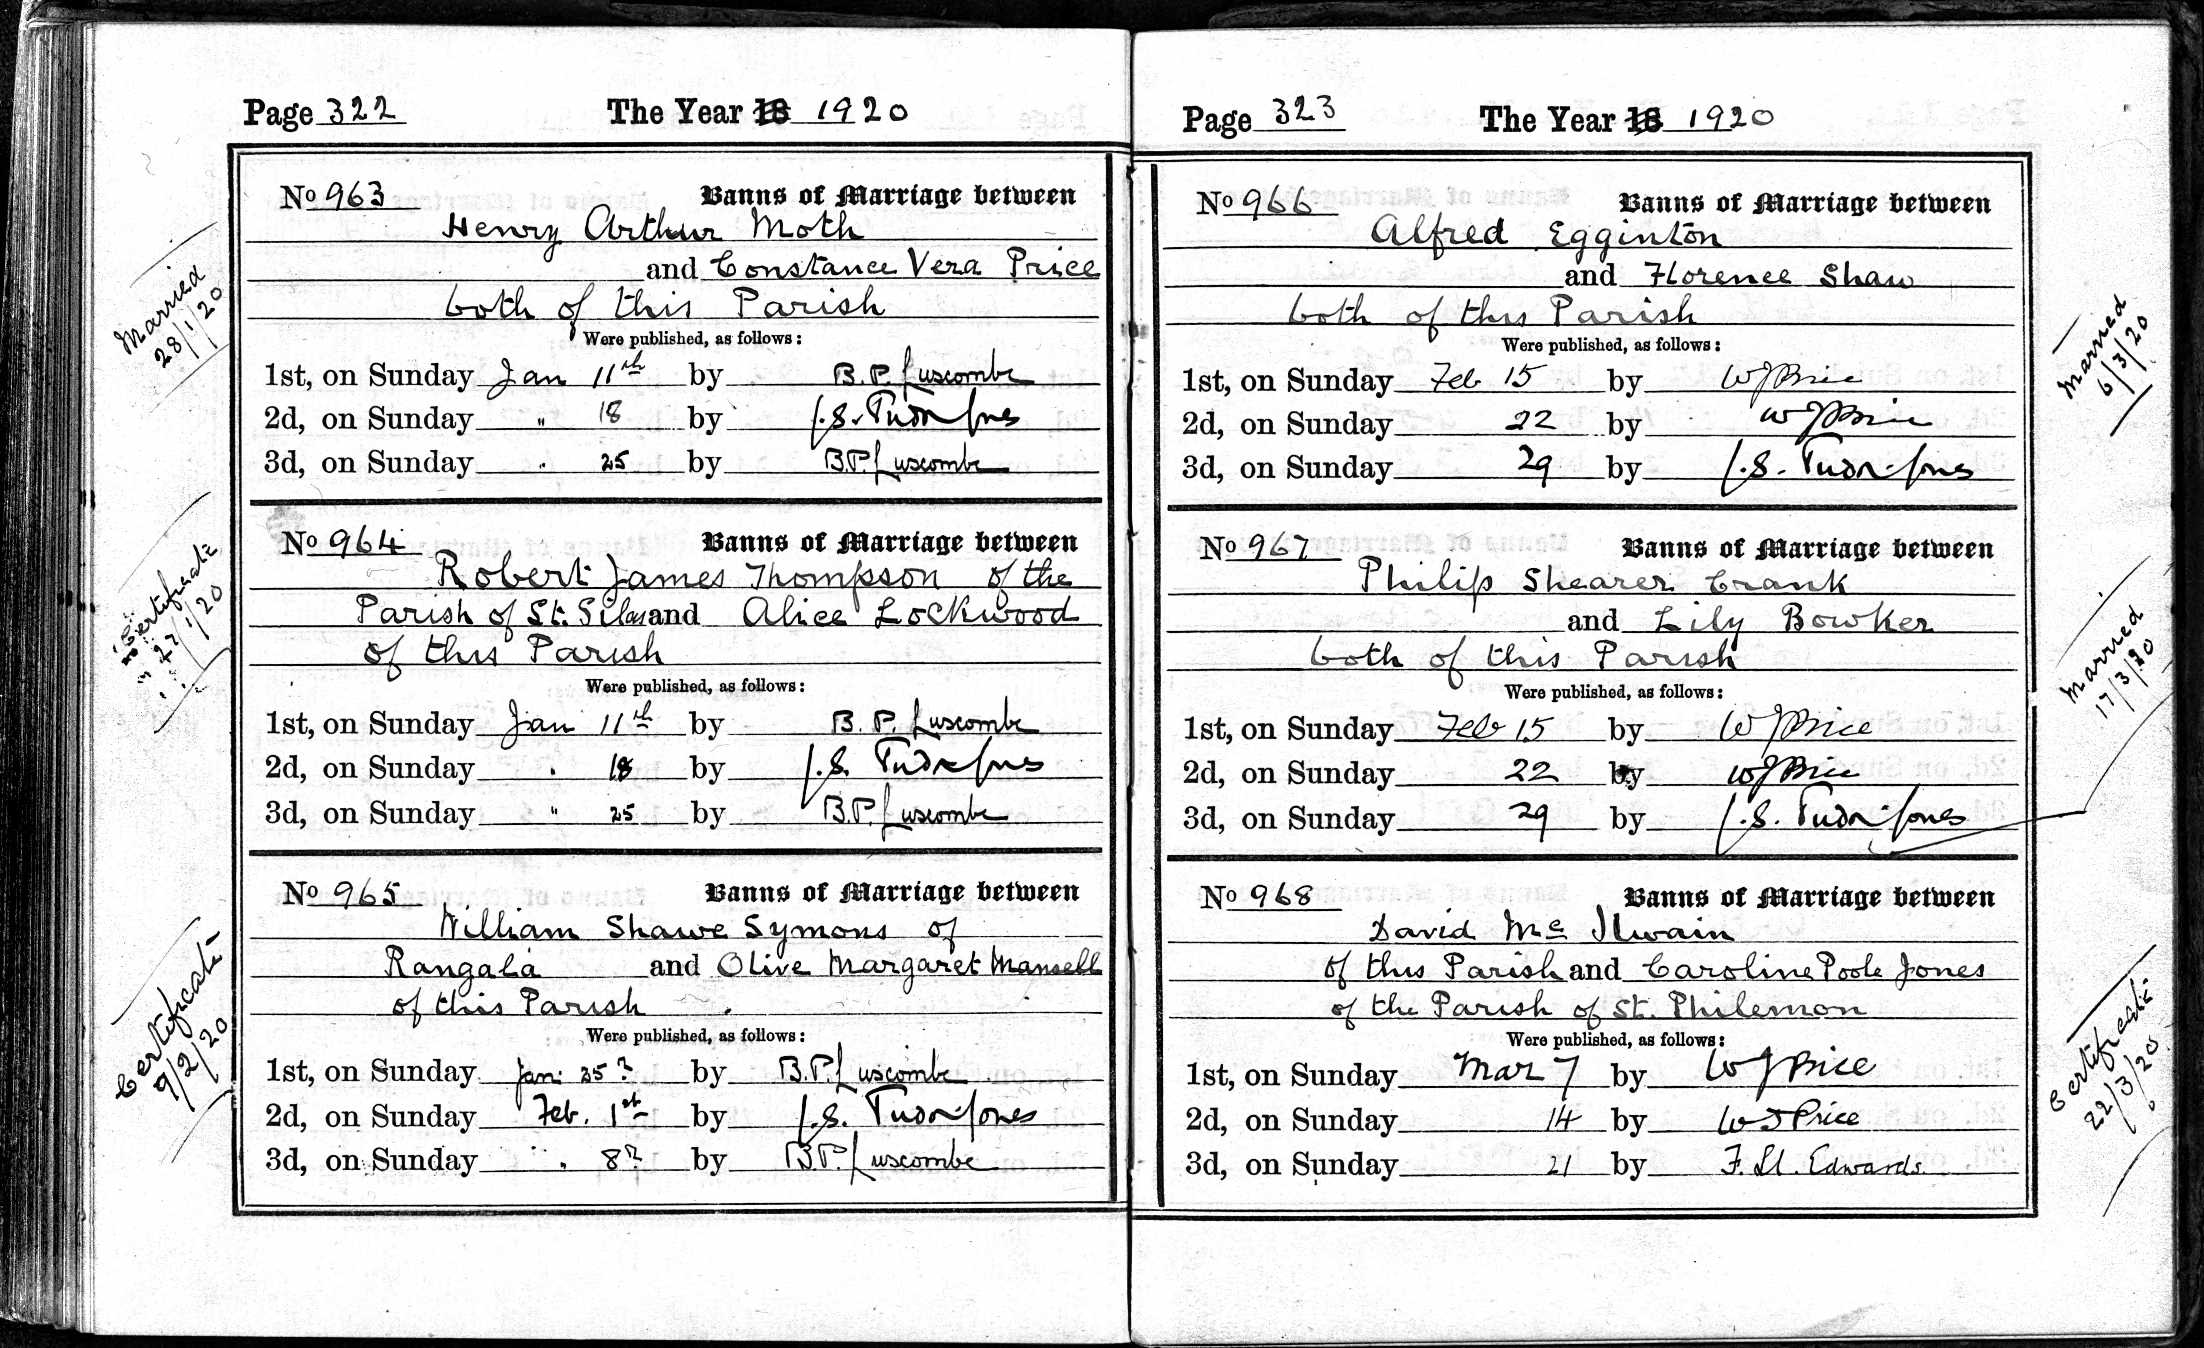 Page 322 The Year 18 1920
No 963 Banns of Marriage between
Henry Arthur Moth
and Constance Vera Price
both of this Parish
Were published, as follows:
1st, on Sunday Jan 11th by B. P. Luscombe
2d, on Sunday " 18 by J. S. Tudor Jones
3d, on Sunday " 25 by B.P. Luscombe
Married
28/1/20
No 964 Banns of Marriage between
Robert James Thompson of the
Parish of St. Silas and Alice Lockwood
of this Parish
Were published, as follows:
1st, on Sunday Jan 11th by B. P. Luscombe
2d, on Sunday " 18 by J. S. Tudor Jones
3d, on Sunday " 25 by B.P. Luscombe
Certificate
27/1/20
No 965 Banns of Marriage between
William Shawe Symons of
Rangala and Olive Margaret Mansell
of this Parish
Were published, as follows:
1st, on Sunday Jan: 25th by B.P. Luscombe
2d, on Sunday Feb. 1st by J. S. Tudor Jones
3d, on Sunday " 8th by B.P. Luscombe
Certificate
9/2/20
Page 323 The Year 18 1920
No 966 Banns of Marriage between
Alfred Egginton
and Florence Shaw
both of this Parish
Were published, as follows:
1st, on Sunday Feb 15 by W J Price
2d, on Sunday 22 by W J Price
3d, on Sunday 29 by J. S. Tudor-Jones
Married
6/3/20
No 967 Banns of Marriage between
Philip Shearer Crank
and Lily Bowker
both of this Parish
Were published, as follows:
1st, on Sunday Feb 15 by W J Price
2d, on Sunday 22 by W J Price
3d, on Sunday 29 by J. S. Tudor-Jones
Married
17/3/20
No 968 Banns of Marriage between
David Mc Ilwain
of this Parish and Caroline Poole Jones
of the Parish of St. Philemon
Were published, as follows:
1st, on Sunday Mar 7 by W J Price
2d, on Sunday 14 by W J Price
3d, on Sunday 21 by F. Ll. Edwards
Certificate
22/3/20